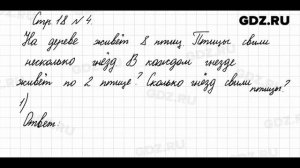 GDZ.RU
Стр. 18 № 4.
На дереве живёт 8 птиц Птицы свили
несколько гнёзд В каждом гнезде
живёт по 2 птице? Сколько гнёзд свили
птицы?
1)
Ответ: